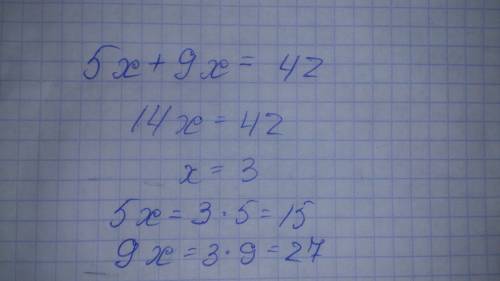 5x + 9x = 42
14x = 42
x = 3
5x = 3 · 5 = 15
9x = 3 · 9 = 27